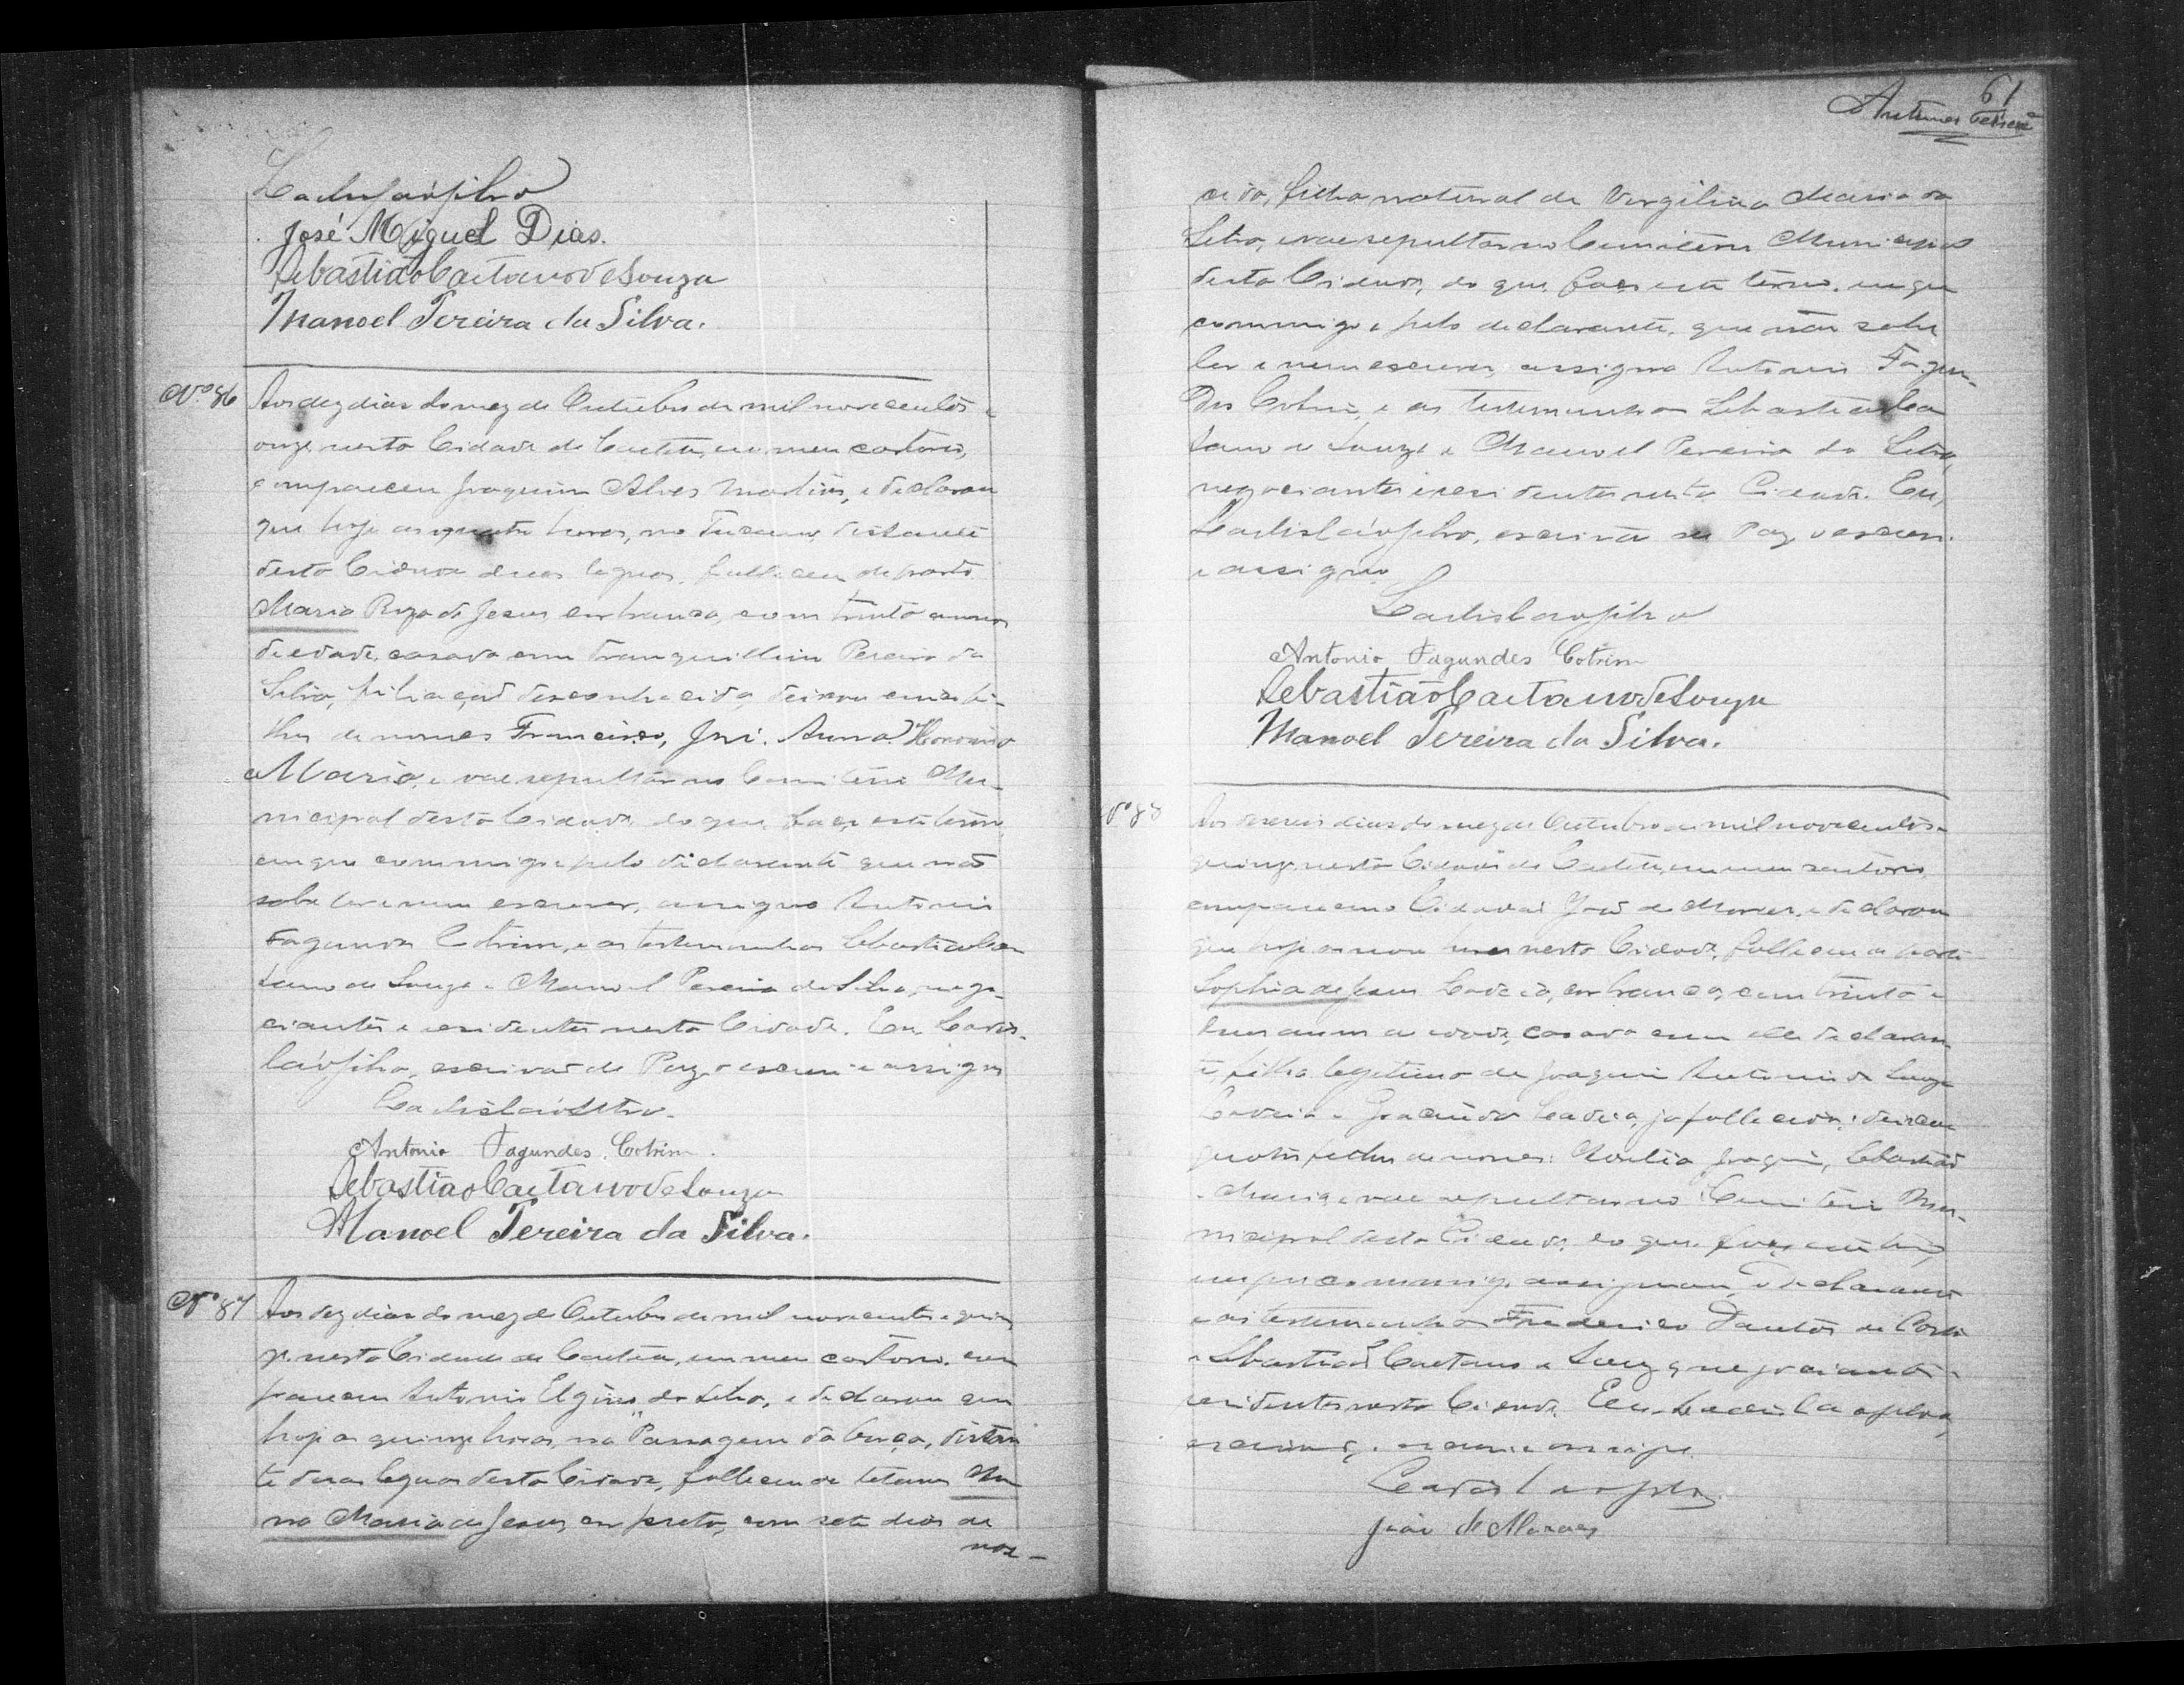 Ladislaofilho
José Miguel Dias.
Sebastião Caetano de Souza
Manoel Pereira da Silva.
Nº 86
Aos dez dias do mez de Outubro de mil novecentos e
nesta Cidade de Caeteté, em meu cartorio,
compareceu Joaquim Alves Martins, e declarou
que hoje as quatro horas, no distante
desta Cidade duas leguas, falleceu de parto
Maria Roza de Jesus, cor branca, com trinta annos
de edade, casada com Tranquillino Pereira da
Silva, filiação desconhecida, deixou
lhos de nomes Francisco, José, Anna, Honorio
e Maria, e vae sepultar no Cemiterio Mu-
nicipal desta Cidade, do que faço este termo,
em que commigo e pelo declarante que não
sabe ler e nem escrever, assigna Antonio
Fagundes Cotrim, e as testemunhas Sebastião Cae
tano de Souza e Manoel Pereira da Silva, nego-
ciantes e residentes nesta Cidade. Eu, Ladis-
láofilho, escrivão de Paz, o escrevi e assigno
Ladisláofilho.
Antonio Fagundes Cotrim.
Sebastião Caetano de Souza
Manoel Pereira da Silva.
Nº 87
Aos dez dias do mez de Outubro de mil novecentos e quin
ze, nesta Cidade de Caeteté, em meu cartorio, com
pareceu Antonio Elgino da Silva, e declarou que
hoje as quinze horas, na "Passagem da , distan
te duas leguas desta Cidade, falleceu de tetano An
na Maria de Jesus, cor preta, com sete dias de
nas-
61
Antunes
cida, filha natural de Vergilina Maria da
Silva, e vae sepultar no Cemiterio Municipal
desta Cidade, do que faço este termo, em que
commigo e pelo declarante, que não sabe
ler e nem escrever, assigna Antonio Fagun-
des Cotrim, e as testemunhas Sebastião Cae
tano de Souza e Manoel Pereira da Silva,
negociantes e residentes nesta Cidade. Eu,
Ladisláofilho, escrivão de Paz, o escrevi
e assigno
Ladislaofilho
Antonio Fagundes Cotrim
Sebastião Caetano de Souza
Manoel Pereira da Silva.
Nº 88
Aos dias do mez de Outubro de mil novecentos e
quinze, nesta Cidade de Caeteté, em meu cartorio,
compareceu o Cidadão João de Moraes, e declarou
que hoje as nove horas nesta Cidade, falleceu de parto
Sophia de Jesus Ladeia, cor branca, com trinta e
annos de edade, casada com elle declaran
te, filha legitima de Joaquim Antonio de Souza
Ladeia e Ladeia, já fallecida; deixou
quatro filhos de nomes: Joaquim, Sebastião
e Maria, e vae sepultar no Cemiterio Mu-
nicipal desta Cidade, do que faço este termo,
em que commigo assignam, o declarante
e as testemunhas Frederico da Costa
e Sebastião Caetano de Souza, negociantes e
residentes nesta Cidade. Eu, Ladislaofilho,
escrivão, o escrevi e assigno
Ladislaofilho
João de Moraes